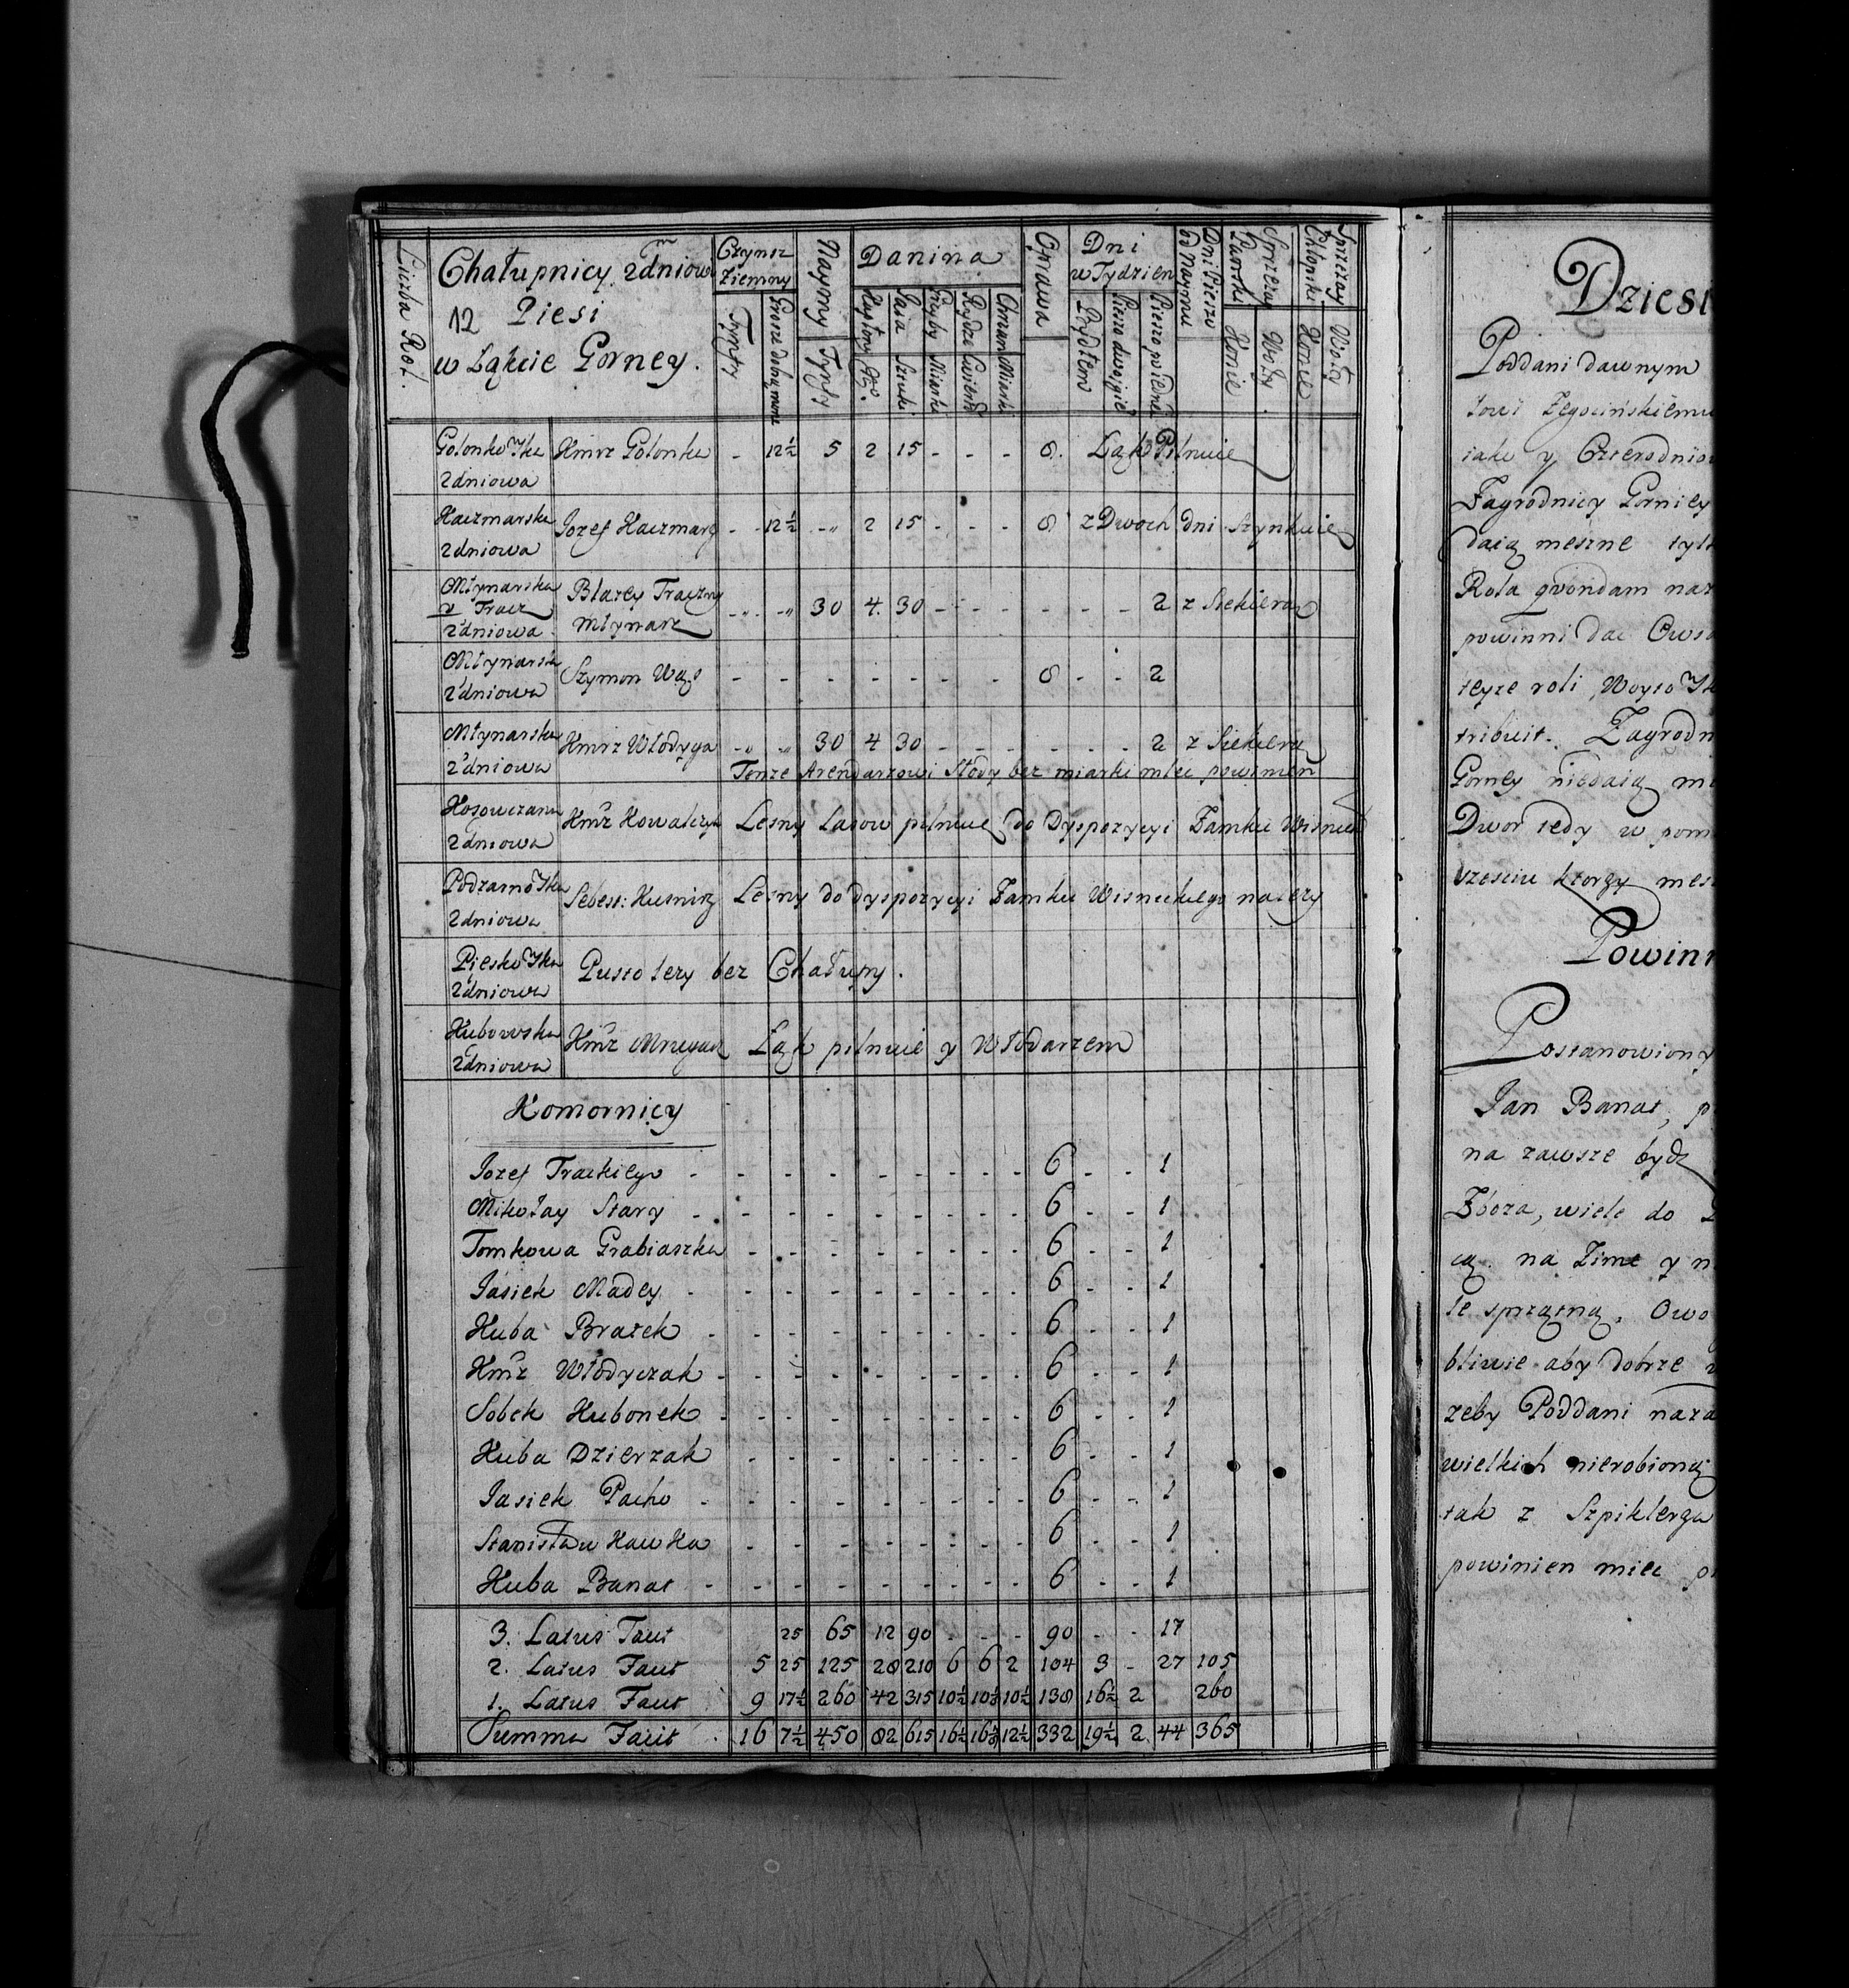 Liczba Rol.
Chałupnicy 2dniow
12 Piesi
w Łąkcie Gorney.
Czynsz Ziemny
Tynfy
Grosze dobrą monę
Naymy
Tynfy
Danina
Kapłony
Jaia Sztuki
Grzyby Miarki
Rydze
Chmiel Miarki
Oprawa
Dni w Tydzien
Bydłem
Pieszo dwoygie
Pieszo poiedne
Dni Pieszo od Naymu
Sprzężay Pański
Konie
Woły
Sprzężay Chłopski
Konie
Woły
Golonkowska 2dniowa Kmrz Golonka - 12½ 5 2 15 - - - 8. Łąk Pilnuie
Kaczmarska 2dniowa Jozef Kaczmarz - 12½ - 2 15 - - - 8 z Dwoch dni Szynkuie
Młynarska y Tracz 2dniowa Błazey Traczny Młynarz - - 30 4 30 - - - - - - 2 z Siekierą
Młynarska 2dniowa Szymon Wąs - - - - - - - - 8 - - 2
Młynarska 2dniowa Kmrz Włodyga - - 30 4 30 - - - - - - 2 z Siekierą
Tenze Arendarzowi Słody bez miarki mleć powinien
2dniowa Kmrz Kowalczyk Lesny Lasow pilnuie do Dyspozycyi Zamku Wisnick
2dniowa Sebest: Kusnirz Lesny do dyspozycyi Zamku Wisnickiego należy
Pieskowska 2dniowa Pusto leży bez Chałupy.
Kuborowska 2dniowa Kmrz Łąk pilnuie y Włodarzem
Komornicy
Jozef - - - - - - - - 6 - - 1
Mikołay Stary - - - - - - - - 6 - - 1
Tomkowa Grabiaszka - - - - - - - - 6 - - 1
Jasiek Madey - - - - - - - - 6 - - 1
Kuba Bratek - - - - - - - - 6 - - 1
Kmrz Włodyczak - - - - - - - - 6 - - 1
Sobek Kubonek - - - - - - - - 6 - - 1
Kuba Dzierzak - - - - - - - - 6 - - 1
Jasiek Pacho - - - - - - - - 6 - - 1
Stanisław Kawka - - - - - - - - 6 - - 1
Kuba Banat - - - - - - - - 6 - - 1
3. Latus Facit 25 65 12 90 - - - 90 - - 17
2. Latus Facit 5 25 125 28 210 6 6 2 104 3 - 27 105
1. Latus Facit 9 17½ 260 42 315 10½ 10½ 10½ 138 16½ 2 260
Summa Facit 16 7½ 450 82 615 16½ 16½ 12½ 332 19½ 2 44 365
Dziesi
Poddani dawnym
iako y Czterodnio
Zagrodnicy Gorniey
daią meszne tyl
Rola quondam naz
powinni dać Owsa
teyże roli
tribuit. Zagrodn
Gorney niedaią m
Dwor tedy w pom
ktorzy mes
Powinn
Postanowiony
Jan Banat, p
na zawsze bydź
Zboża, wiele do
cą na Zime y n
te sprzątną, Owo
bliwie aby dobrze
żeby Poddani naza
wielkich nierobiono
tak z Szpiklerza
powinien mieć p